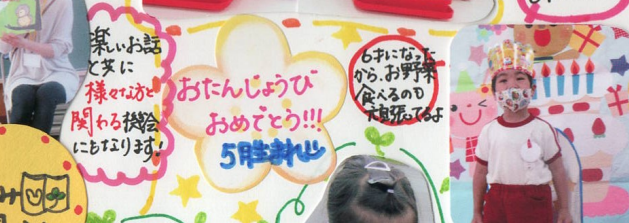 楽しいお話
と共に
様々な方と
関わる機会
にもなります!
おたんじょうび
おめでとう!!!
5月生まれ
6才になった
から、お野菜
食べるのも
頑張ってるよ
み